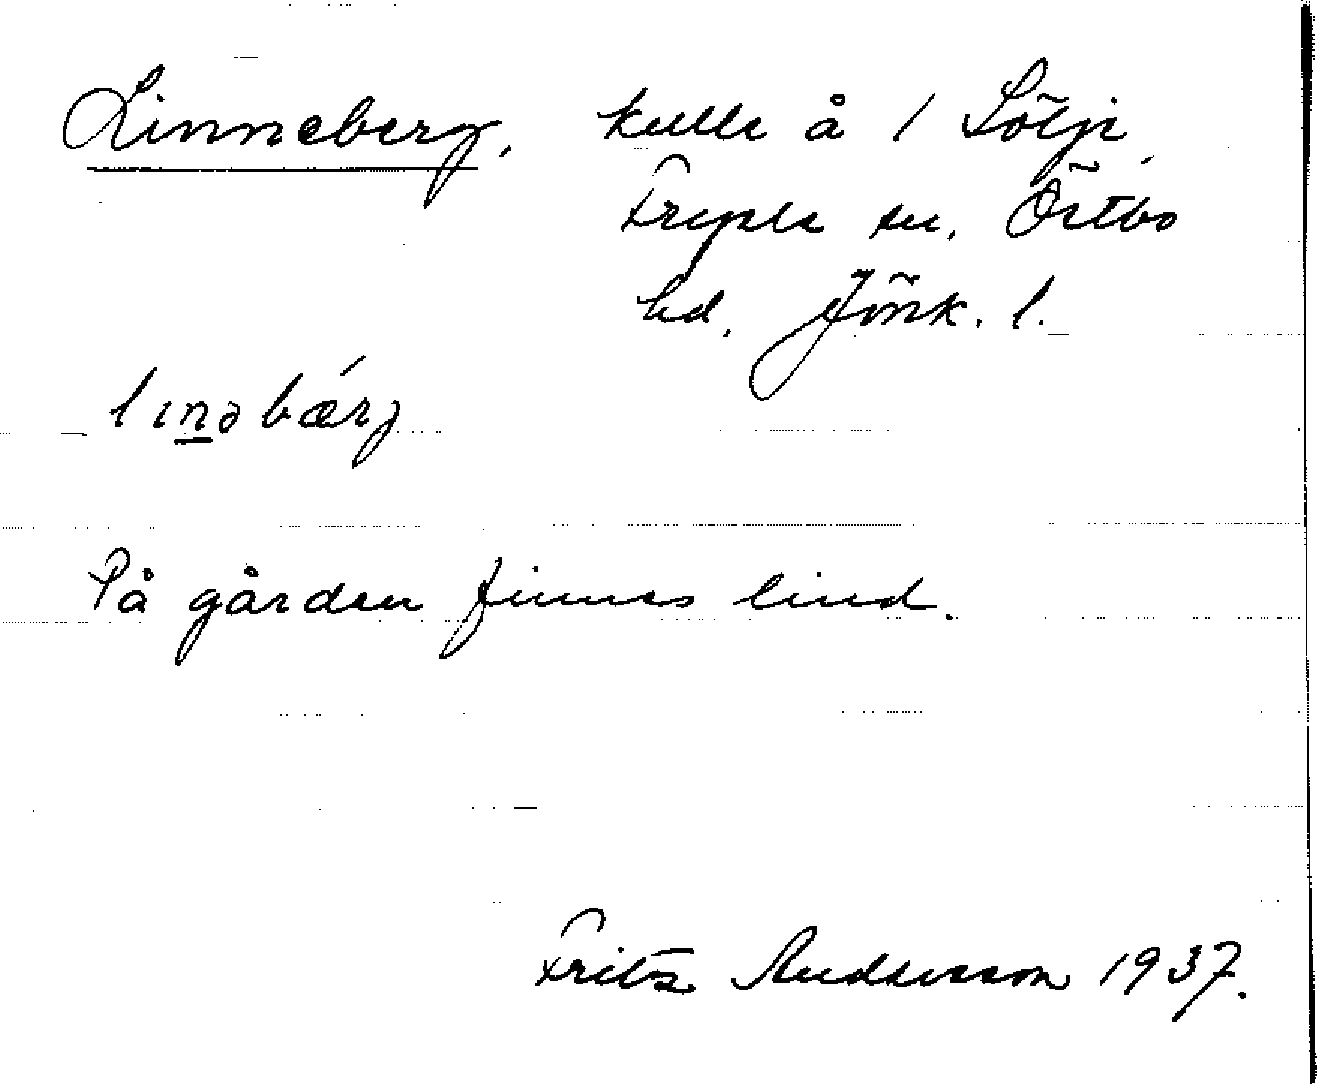 Linneberg, kulle å 1 Sölje,
Fryele sn, Östbo
hd, Jönk. l.
linəbærj
På gården finnes lind.
Fritz Andersson 1937.